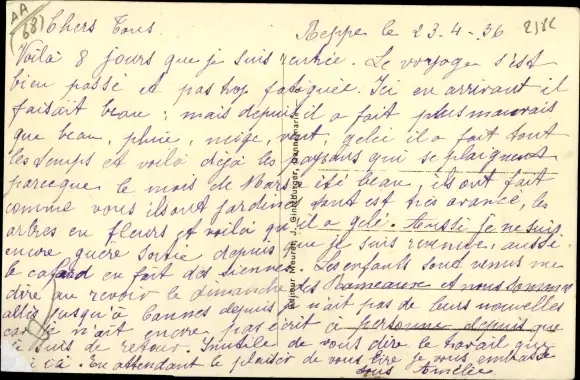 AA
(68)
Chers Tous. Reppe le 23-4-36
Voilà 8 jours que je suis rentrée. Le voyage s'est
bien passé et pas trop fatiguée. Ici en arrivant il
faisait beau; mais depuis il a fait plus mauvais
que beau, pluie, neige, vent, gelée il a fait tout
les temps et voilà déjà les paysans qui se plaignent
parceque le mois de Mars a été beau, ils ont fait
comme vous ils ont jardiner tout est très avancé, les
arbres en fleurs et voilà qu'il a gelé. Aussi je ne suis
encore guère sortie depuis que je suis revenue, aussi
le cafard en fait des siennes. Les enfants sont venus me
dire au revoir le dimanche des Rameaux et nous sommes
allés jusqu'à Cannes depuis je n'ait pas de leurs nouvelles
car je n'ait encore pas écrit a personne depuis que
je suis de retour. Inutile de vous dire le travail que
j'ai çà. En attendant le plaisir de vous lire je vous embrasse
tous Amélie
Editeur Dannemarie